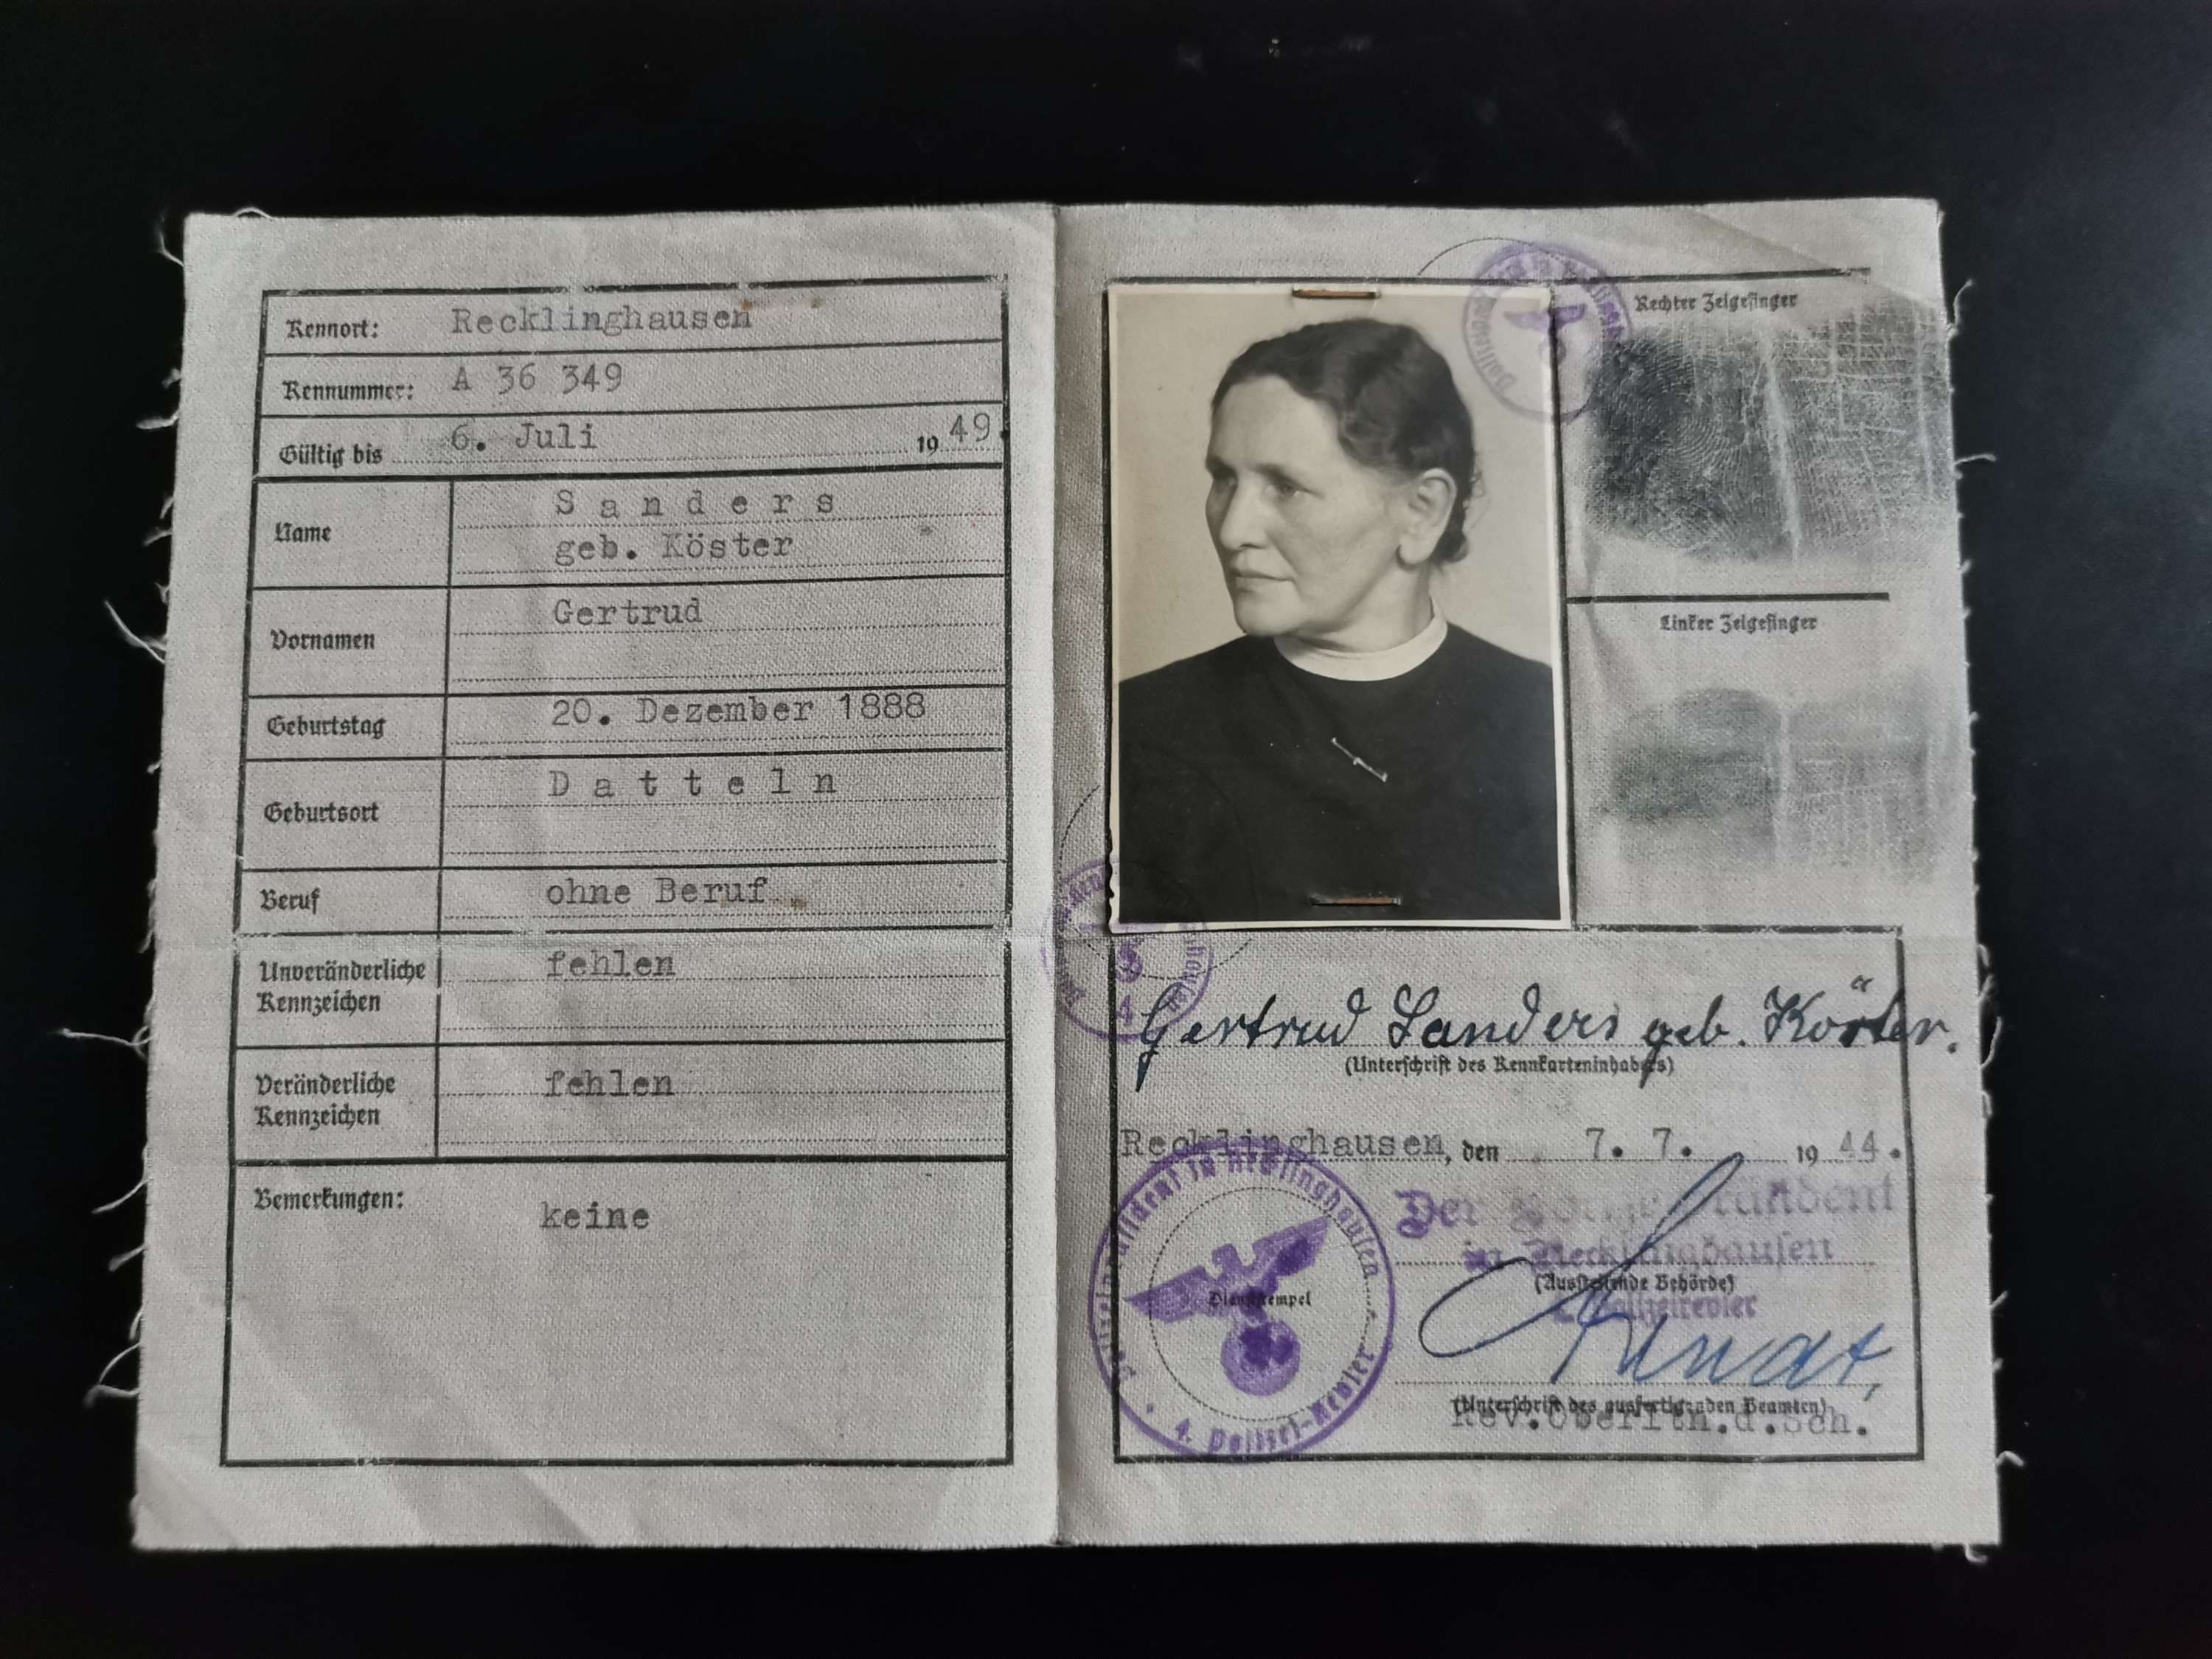 Kennort: Recklinghausen
Kennummer: A 36 349
Gültig bis 6. Juli 1949
Name Sanders
geb. Köster
Vornamen Gertrud
Geburtstag 20. Dezember 1888
Geburtsort Datteln
Beruf ohne Beruf
Unveränderliche Kennzeichen fehlen
Veränderliche Kennzeichen fehlen
Bemerkungen: keine
Rechter Zeigefinger
Linker Zeigefinger
Gertrud Sanders geb. Köster.
(Unterschrift des Kennkarteninhabers)
Recklinghausen, den 7. 7. 1944.
Der Polizeipräsident
in Recklinghausen
(Ausstellende Behörde)
Polizeirevier
Dienststempel
Polizeipräsident in Recklinghausen
4. Polizei-Revier
(Unterschrift des ausfertigenden Beamten)
Rev.Oberltn.d.Sch.